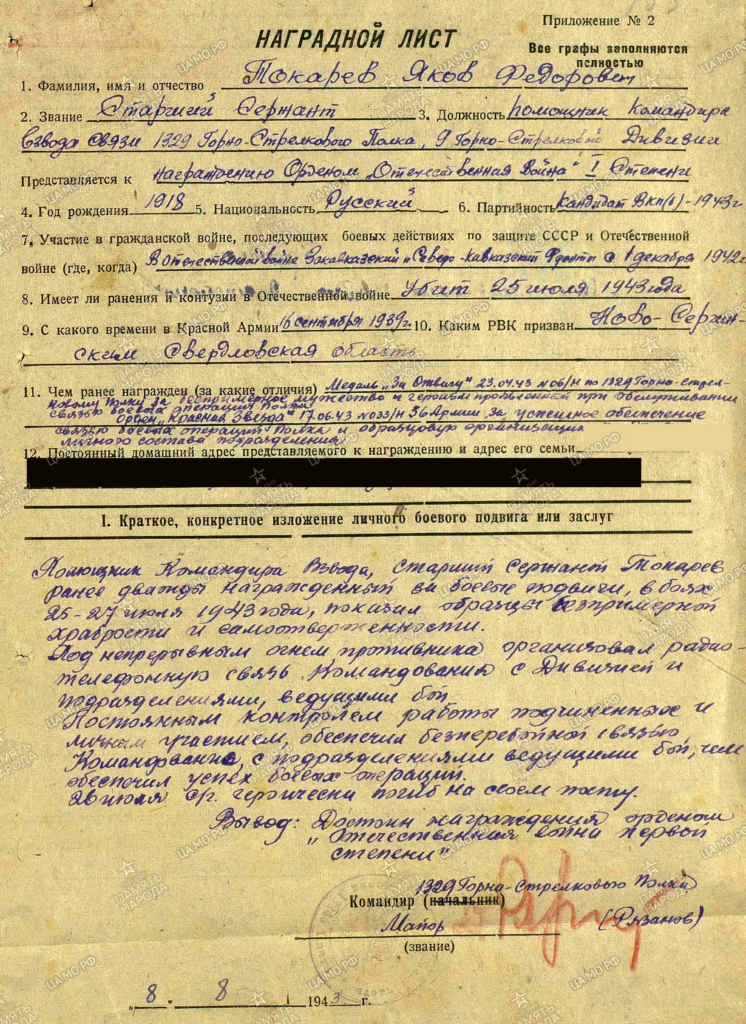 Приложение № 2
НАГРАДНОЙ ЛИСТ
Все графы заполняются
полностью
1. Фамилия, имя и отчество Токарев Яков Федорович
2. Звание Старший Сержант 3. Должность помощник Командира
Взвода Связи 1329 Горно-Стрелкового Полка, 9 Горно-Стрелковой Дивизии
Представляется к награждению Орденом „Отечественная Война" I Степени
4. Год рождения 1918 5. Национальность Русский 6. Партийность Кандидат Вкп(б)-1943г
7. Участие в гражданской войне, последующих боевых действиях по защите СССР и Отечественной
войне (где, когда) В Отечественной войне Закавказский и Северо-Кавказский Фронты с 1 декабря 1942г
8. Имеет ли ранения и контузии в Отечественной войне Убит 25 июля 1943 года
9. С какого времени в Красной Армии 16 сентября 1939г. 10. Каким РВК призван Ново-Сергин-
ским, Свердловская область
11. Чем ранее награжден (за какие отличия) Медаль „За Отвагу" 23.04.43 №06/н по 1329 Горно-стрел-
ковому полку за беспримерное мужество и героизм проявленный при обслуживании
связью боевых операций Полка,
орден „Красная Звезда" 17.06.43 №033/н 56 Армии за успешное обеспечение
связью боевых операций Полка и образцовую организацию
личного состава подразделения.
12. Постоянный домашний адрес представляемого к награждению и адрес его семьи
I. Краткое, конкретное изложение личного боевого подвига или заслуг
Помощник Командира Взвода, старший сержант Токарев
ранее дважды награжденный за боевые подвиги, в боях
25-27 июля 1943 года, показал образцы безпримерной
храбрости и самоотверженности.
Под непрерывным огнем противника организовал радио-
телефонную связь Командования с Дивизией и
подразделениями, ведущими бой
Постоянным контролем работы подчиненных и
личным участием, обеспечил безперебойной связью
Командование, с подразделениями ведущими бой, чем
обеспечил успех боевых операций.
28 июля с/г. героически погиб на своем посту.
Вывод: Достоин награждения орденом
„Отечественная война первой
степени"
1329 Горно-Стрелкового Полка
Командир (начальник)
Майор (Рязанов)
(звание)
„8" 8 1943 г.
ЦАМО.РФ
ПАМЯТЬ
НАРОДА